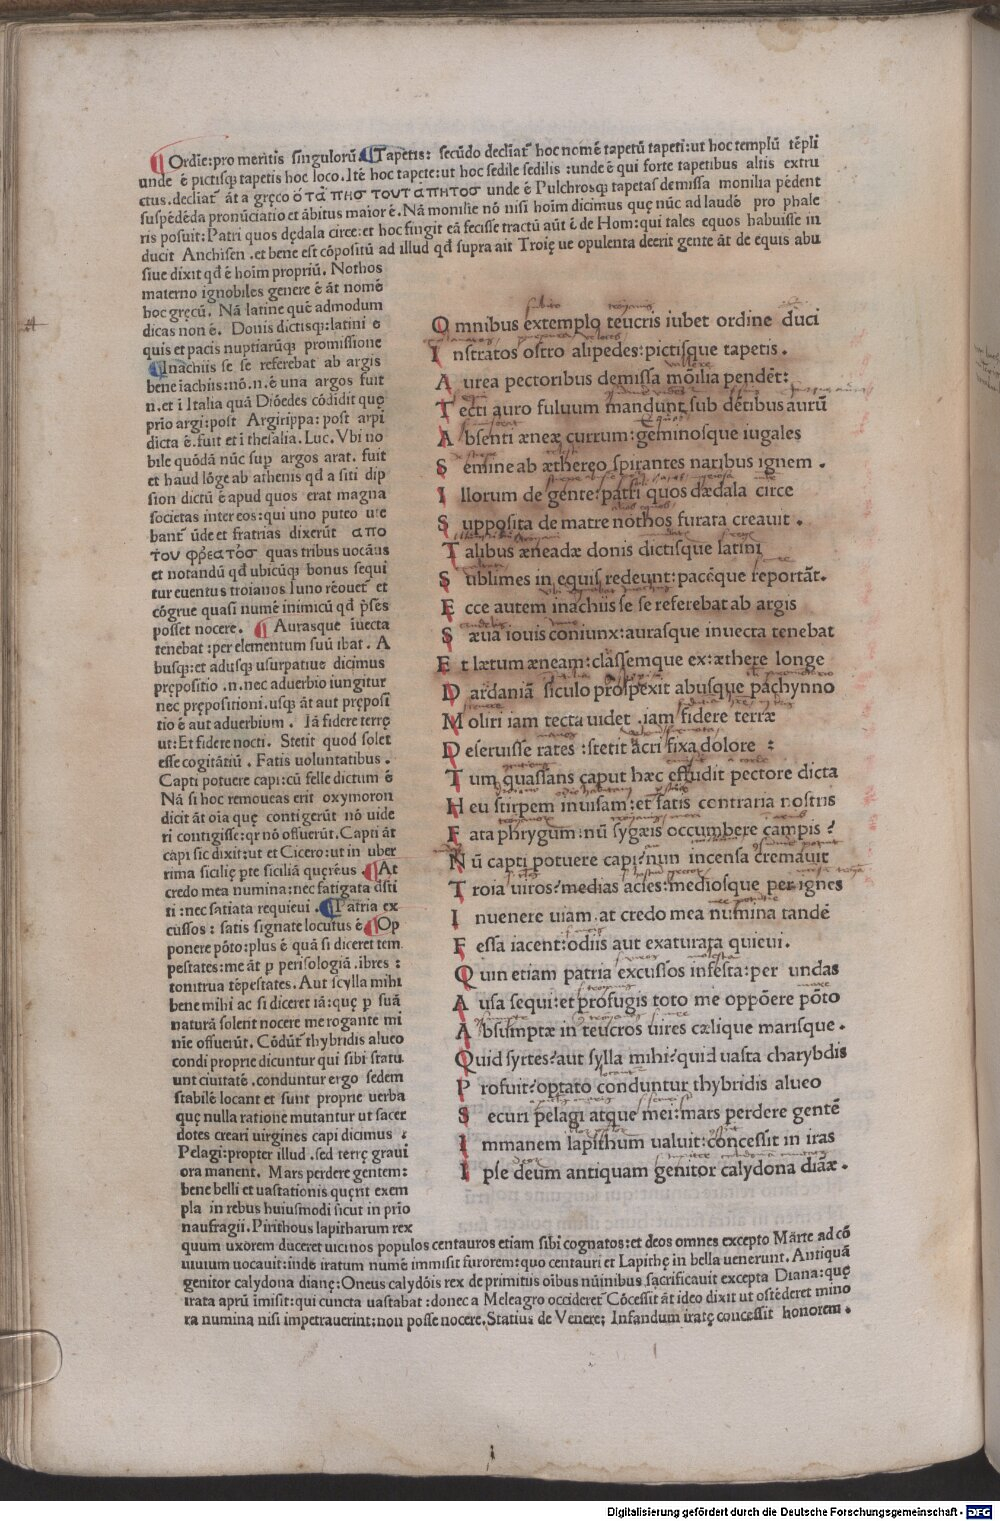 Ordīe:pro meritis singulorū. Tapetis: secūdo decliat᷑ hoc nomē tapetū tapeti:ut hoc templū tēpli
unde ē pictisq̨ tapetis hoc loco. Itē hoc tapete:ut hoc sedile sedilis :unde ē qui forte tapetibus altis extru
ctus .decliat᷑ āt a gręco ὁ τάπησ του ταπητοσ unde ē Pulchrosq̨ tapetas demissa monilia pēdent
suspēdēda pronūciatio et ābitus maior ē. Nā monilie nō nisi hoīm dicimus quę nūc ad laudē pro phale
ris posuit: Patri quos dędala circe: et hoc fingit eā fecisse tractū aūt ē de Hom: qui tales equos habuisse in
ducit Anchisen .et bene est cōpositū ad illud qd̄ supra ait Troię ue opulenta deerit gente āt de equis abu
siue dixit qd̄ ē hoīm propriū. Nothos
materno ignobiles genere ē āt nomē
hoc gręcū. Nā latine quē admodum
dicas non ē. Donis dictisq̨:latini e
quis et pacis nuptiarūq̨ promissione
Inachiis se se referebat ab argis
bene iachiis: nō.n.ē una argos fuit
n.et ī Italia quā Diōedes cōdidit quę
prio argi:post Argirippa: post arpi
dicta ē.fuit et ī thesalia. Luc. Vbi no
bile quōdā nūc sup argos arat. fuit
et haud lōge ab athenis qd̄ a siti dip
sion dictū ē apud quos erat magna
societas inter eos: qui uno puteo ute
bant᷑ ūde et fratrias dixerūt απο
του φρεατόσ quas tribus uocāus
et notandū qd̄ ubicūq̨ bonus sequi
tur euentus troianos Iuno rēouet᷑ et
cōgrue quasi numē inimicū qd̄ p̄ses
posset nocere. Aurasque īuecta
tenebat :per elementum suū ibat. A
busq̨:et adusq̨ usurpatiue dicimus
prępositio .n.nec aduerbio iungitur
nec prępositioni.usq̨ āt aut pręposi
tio ē aut aduerbium . Iā fidere terrę
ut: Et fidere nocti. Stetit quod solet
esse cogitātiū . Fatis uoluntatibus.
Capti potuere capi: cū felle dictum ē
Nā si hoc remoueas erit oxymoron
dicit āt oīa quę contigerūt nō uide
ri contigisse: qr nō offuerūt. Capti āt
capi sic dixit: ut et Cicero: ut in uber
rima sicilię pte siciliā quęréus. At
credo mea numina: nec fatigata dsti
ti :nec satiata requieui . Patria ex
cussos : satis signate locutus ē Op
ponere pōto: plus ē quā si diceret tem
pestates: me āt p perisologiā .ibres :
tonitrua tēpestates. Aut scylla mihi
bene mihi ac si diceret iā: quę p suā
naturā solent nocere me rogante mi
nie offuerūt. Cōdūt᷑ thybridis alueo
condi proprie dicuntur qui sibi statu
unt ciuitatē .conduntur ergo sedem
stabilē locant et sunt proprie uerba
quę nulla ratione mutantur ut sacer
dotes creari uirgines capi dicimus :
Pelagi: propter illud .sed terrę graui
ora manent. Mars perdere gentem:
bene belli et uastationis quęrit exem
pla in rebus huiusmodi sicut in prio
naufragii. Pirithous lapitharum rex
quum uxorem duceret uicinos populos centauros etiam sibi cognatos: et deos omnes excepto Marte ad cō
uiuium uocauit: inde iratum numē immisit furorem: quo centauri et Lapithę in bella uenerunt. Antiquā
genitor calydona dianę: Oneus calydōis rex de primitiis oībus nūinibus sacrificauit excepta Diana: quę
irata aprū imisit: qui cuncta uastabat : donec a Meleagro occideret᷑ Cōcessit āt ideo dixit ut ostēderet mino
ra numina nisi impetrauerint: non posse nocere. Statius de Venere; Infandum iratę concessit honorem.
O mnibus extemplo teucris iubet ordine duci
I nstratos ostro alipedes: pictisque tapetis.
A urea pectoribus demissa moīlia pendēt:
T ecti auro fuluum mandunt sub dētibus aurū
A bsenti æneæ currum: geminosque iugales
S emine ab æthereo spirantes naribus ignem .
I llorum de gente: patri quos dædala circe
S upposita de matre nothos furata creauit .
T alibus æneadæ donis dictisque latini
S ublimes in equis redeunt: pacēque reportāt.
E cce autem inachiis se se referebat ab argis
S æua iouis coniunx: aurasque inuecta tenebat
E t lætum æneam: classemque ex: æthere longe
D ardaniā siculo prospexit abusque pachynno
M oliri iam tecta uidet .iam fidere terræ
D eseruisse rates : stetit acri fixa dolore :
T um quassans caput hæc effudit pectore dicta
H eu stirpem inuisam: et fatis contraria nostris
F ata phrygum: nū sygæis occumbere campis ?
N ū capti potuere capi? nun incensa cremauit
T roia uiros? medias acies: mediosque per ignes
I nuenere uiam. at credo mea numina tandē
F essa iacent: odiis aut exaturata quieui.
Q uin etiam patria excussos infesta: per undas
A usa sequi: et profugis toto me oppōere pōto
A bsumptæ in teucros uires cælique marisque.
Q uid syrtes? aut sylla mihi? quid uasta charybdis
P rofuit? optato conduntur thybridis alueo
S ecuri pelagi atque mei: mars perdere gentē
I mmanem lapithum ualuit: concessit in iras
I pse deum antiquam genitor calydona diāæ.
Digitalisierung gefördert durch die Deutsche Forschungsgemeinschaft - DFG